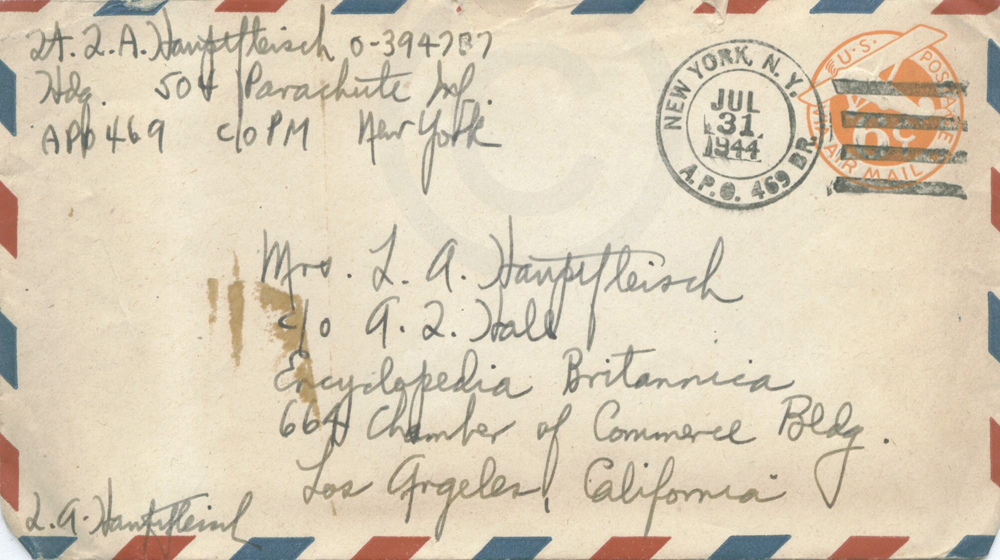 Lt. L. A. Hauptfleisch O-394787
Hdq. 504 Parachute Inf.
APO 469 c/o PM New York
NEW YORK, N. Y.
JUL
31
1944
A.P.O. 469 BR.
U.S. POSTAGE
6¢
VIA AIR MAIL
Mrs. L. A. Hauptfleisch
c/o A. L. Hall
Encyclopedia Britannica
664 Chamber of Commerce Bldg.
Los Angeles, California
L. A. Hauptfleisch